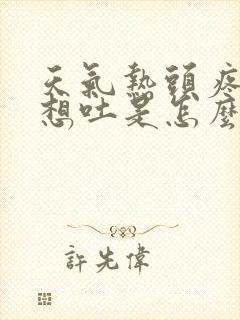 天氣熱頭疼
想吐是怎麼
許先偉